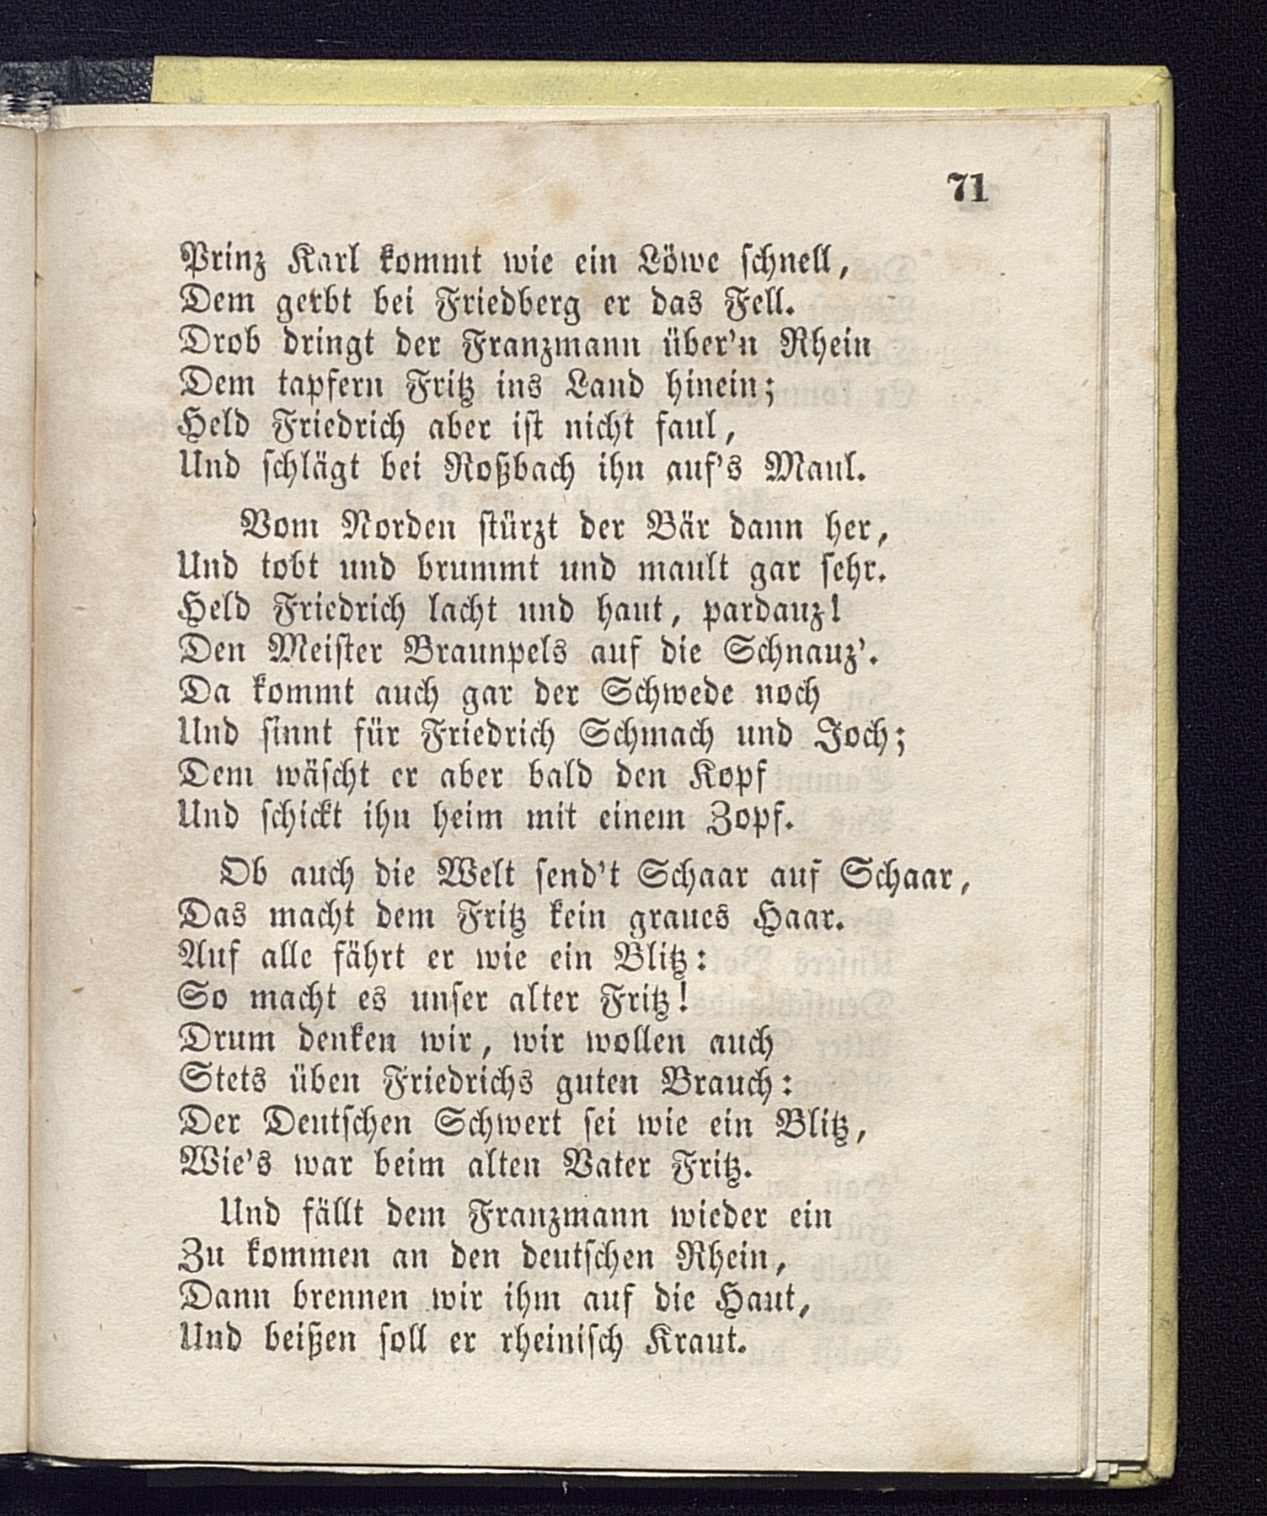 71
Prinz Karl kommt wie ein Löwe schnell,
Dem gerbt bei Friedberg er das Fell.
Drob dringt der Franzmann über'n Rhein
Dem tapfern Fritz ins Land hinein;
Held Friedrich aber ist nicht faul,
Und schlägt bei Roßbach ihn auf's Maul.
Vom Norden stürzt der Bär dann her,
Und tobt und brummt und mault gar sehr.
Held Friedrich lacht und haut, pardauz!
Den Meister Braunpels auf die Schnauz'.
Da kommt auch gar der Schwede noch
Und sinnt für Friedrich Schmach und Joch;
Dem wäscht er aber bald den Kopf
Und schickt ihn heim mit einem Zopf.
Ob auch die Welt send't Schaar auf Schaar,
Das macht dem Fritz kein graues Haar.
Auf alle fährt er wie ein Blitz:
So macht es unser alter Fritz!
Drum denken wir, wir wollen auch
Stets üben Friedrichs guten Brauch:
Der Deutschen Schwert sei wie ein Blitz,
Wie's war beim alten Vater Fritz.
Und fällt dem Franzmann wieder ein
Zu kommen an den deutschen Rhein,
Dann brennen wir ihm auf die Haut,
Und beißen soll er rheinisch Kraut.